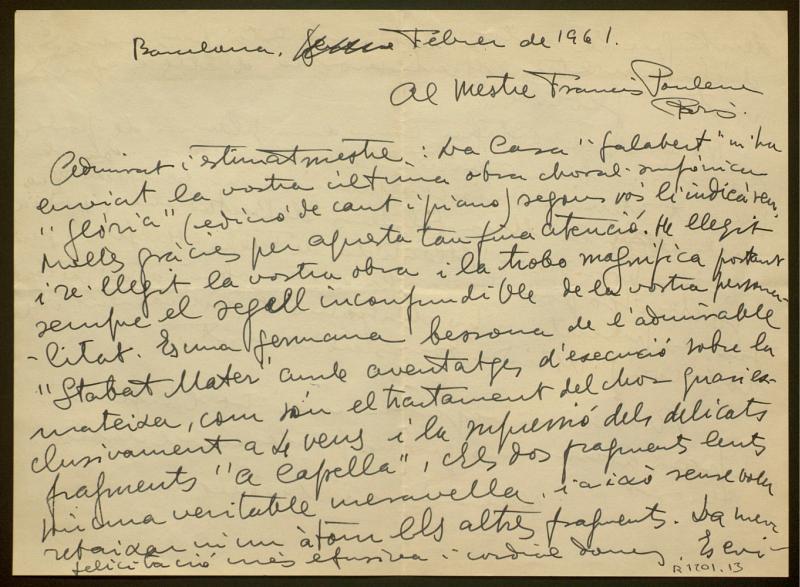 Barcelona, Febrer de 1961.
Al Mestre Francis Poulenc
París.
Admirat i estimat mestre: La Casa "Salabert" m'ha
enviat la vostra última obra choral-sinfónica
"Glória" (edició de cant i piano) segons vos li indicáreu.
Moltes gràcies per aquesta tan fina atenció. He llegit
i re-llegit la vostra obra i la trobo magnifica portant
sempre el segell inconfundible de la vostra persona-
-litat. Es una germana bessona de l'admirable
"Stabat Mater" amb aventatges d'execució sobre la
mateixa, com són el tractament del chor quasi ex-
clusivament a 4 veus i la supressió dels delicats
fragments "a Capella", Els dos fragments lents
són una veritable meravella, i aixó sense voler
rebaixar ni un àtom els altres fragments. La meva
felicitació més efusiva i cordial doncs. Es evi-
R 1201.13